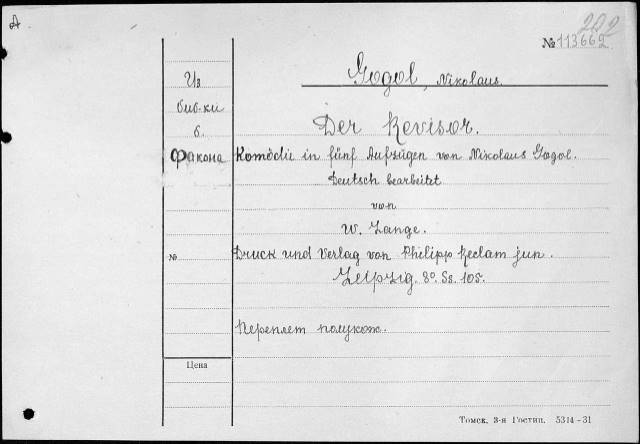 А
202
№ 113662
Gogol, Nikolaus.
Из
биб-ки
б.
Факона
Der Revisor.
Komödie in fünf Aufzügen von Nikolaus Gogol.
Deutsch bearbeitet
von
W. Lange.
№
Druck und Verlag von Philipp Reclam jun.
Leipzig. 8o. Ss. 105.
Переплет полукож.
Цена
Томск, 3-я Гостип. 5314-31